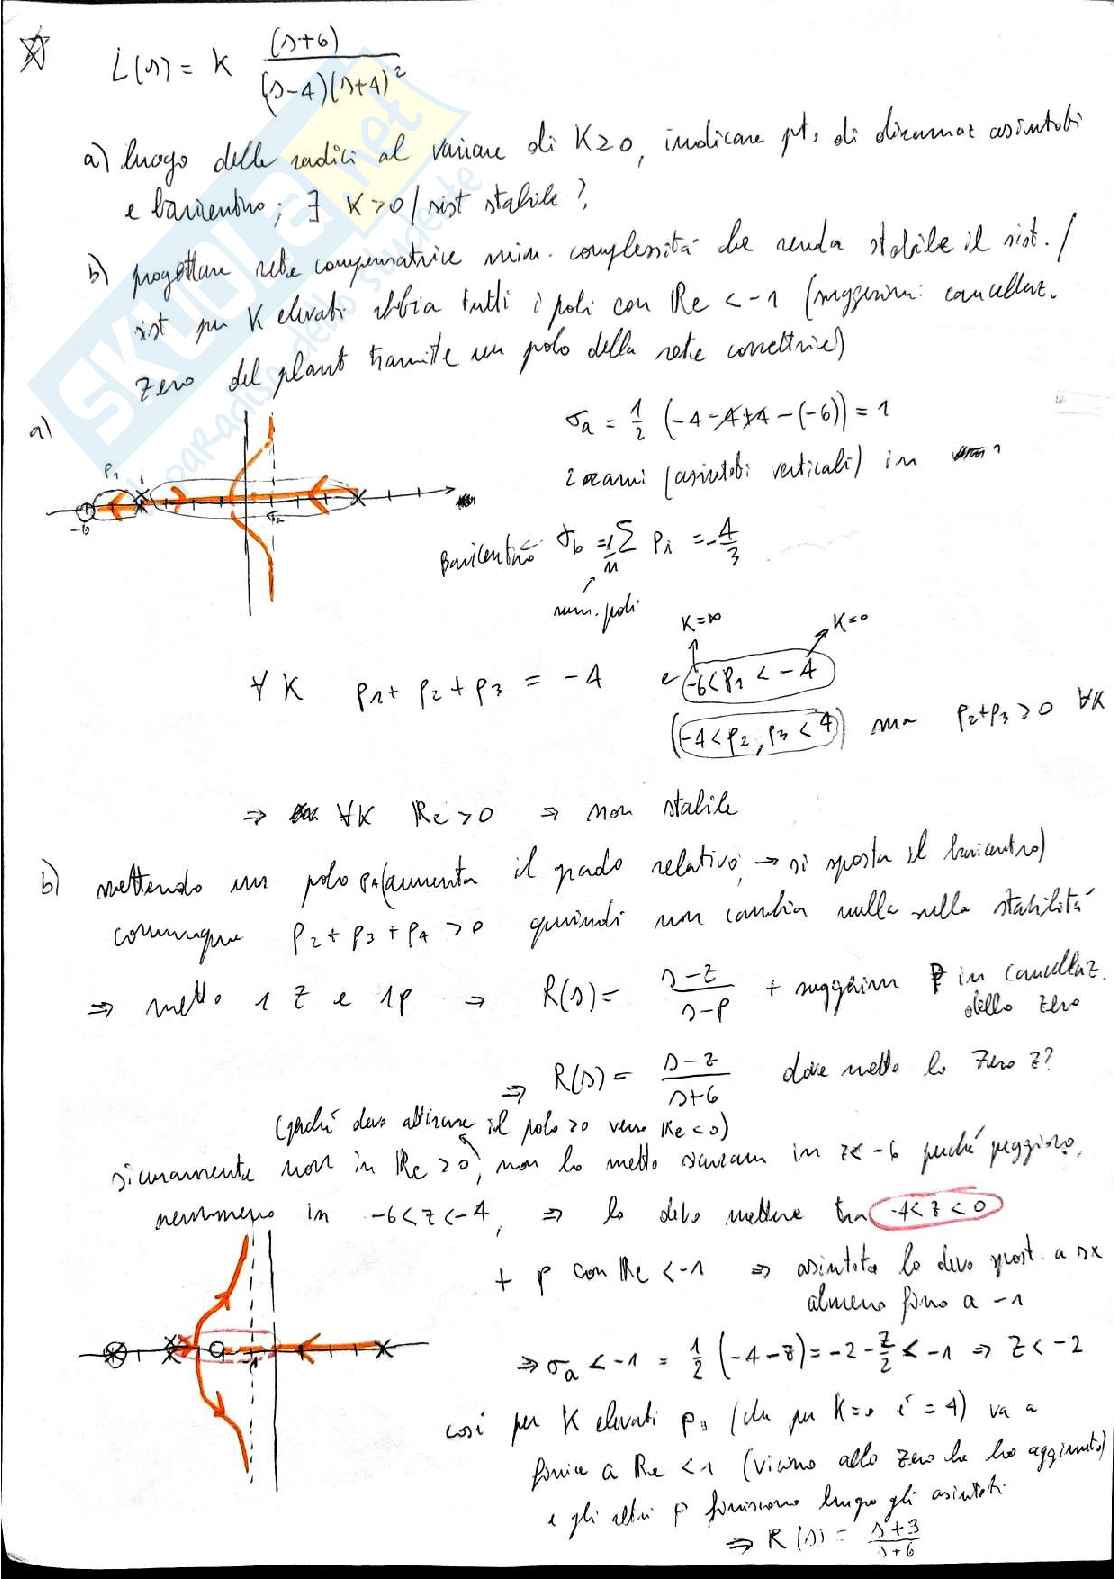 L(s) = K (s+6) / (s-4)(s+4)²
a) luogo delle radici al variare di K≥0, indicare pt. di diramaz asintoti
e baricentro; ∃ K>0 / sist stabile?
b) progettare rete compensatrice min. complessità che renda stabile il sist. /
sist per K elevati abbia tutti i poli con Re < -1 (suggerim: cancellaz.
zero del plant tramite un polo della rete correttrice)
SKUOLA.net
a)
σa = 1/2 (-4-4+4-(-6)) = 1
2 rami (asintoti verticali) in 1
P1
-6
σa
Baricentro σb = 1/n Σ Pi = -4/3
num. poli
K=∞ K=0
∀ K p1+p2+p3 = -4 e -6<p1<-4
(-4<p2, p3<4) ma p2+p3>0 ∀K
⇒ ∀K Re>0 ⇒ non stabile
b) mettendo un polo p4 (aumenta il grado relativo, → si sposta il baricentro)
comunque p2+p3+p4>0 quindi non cambia nulla nella stabilità
⇒ metto 1 z e 1p ⇒ R(s) = s-z / s-p + suggerim p in cancellaz.
dello zero
⇒ R(s) = s-z / s+6 dove metto lo zero z?
(perché devo attirare il polo >0 verso Re<0)
sicuramente non in Re>0, non lo metto in z<-6 perché peggioro,
nemmeno in -6<z<-4, ⇒ lo devo mettere tra -4<z<0
+ p con Re<-1 ⇒ asintoto lo devo spost. a sx
almeno fino a -1
-1
⇒ σa < -1 = 1/2 (-4-z) = -2-z/2 ≤ -1 ⇒ z<-2
così per K elevati p3 (che per K=0 è =4) va a
finire a Re<-1 (vicino allo zero che ho aggiunto)
e gli altri p finiscono lungo gli asintoti
⇒ R(s) = s+3 / s+6